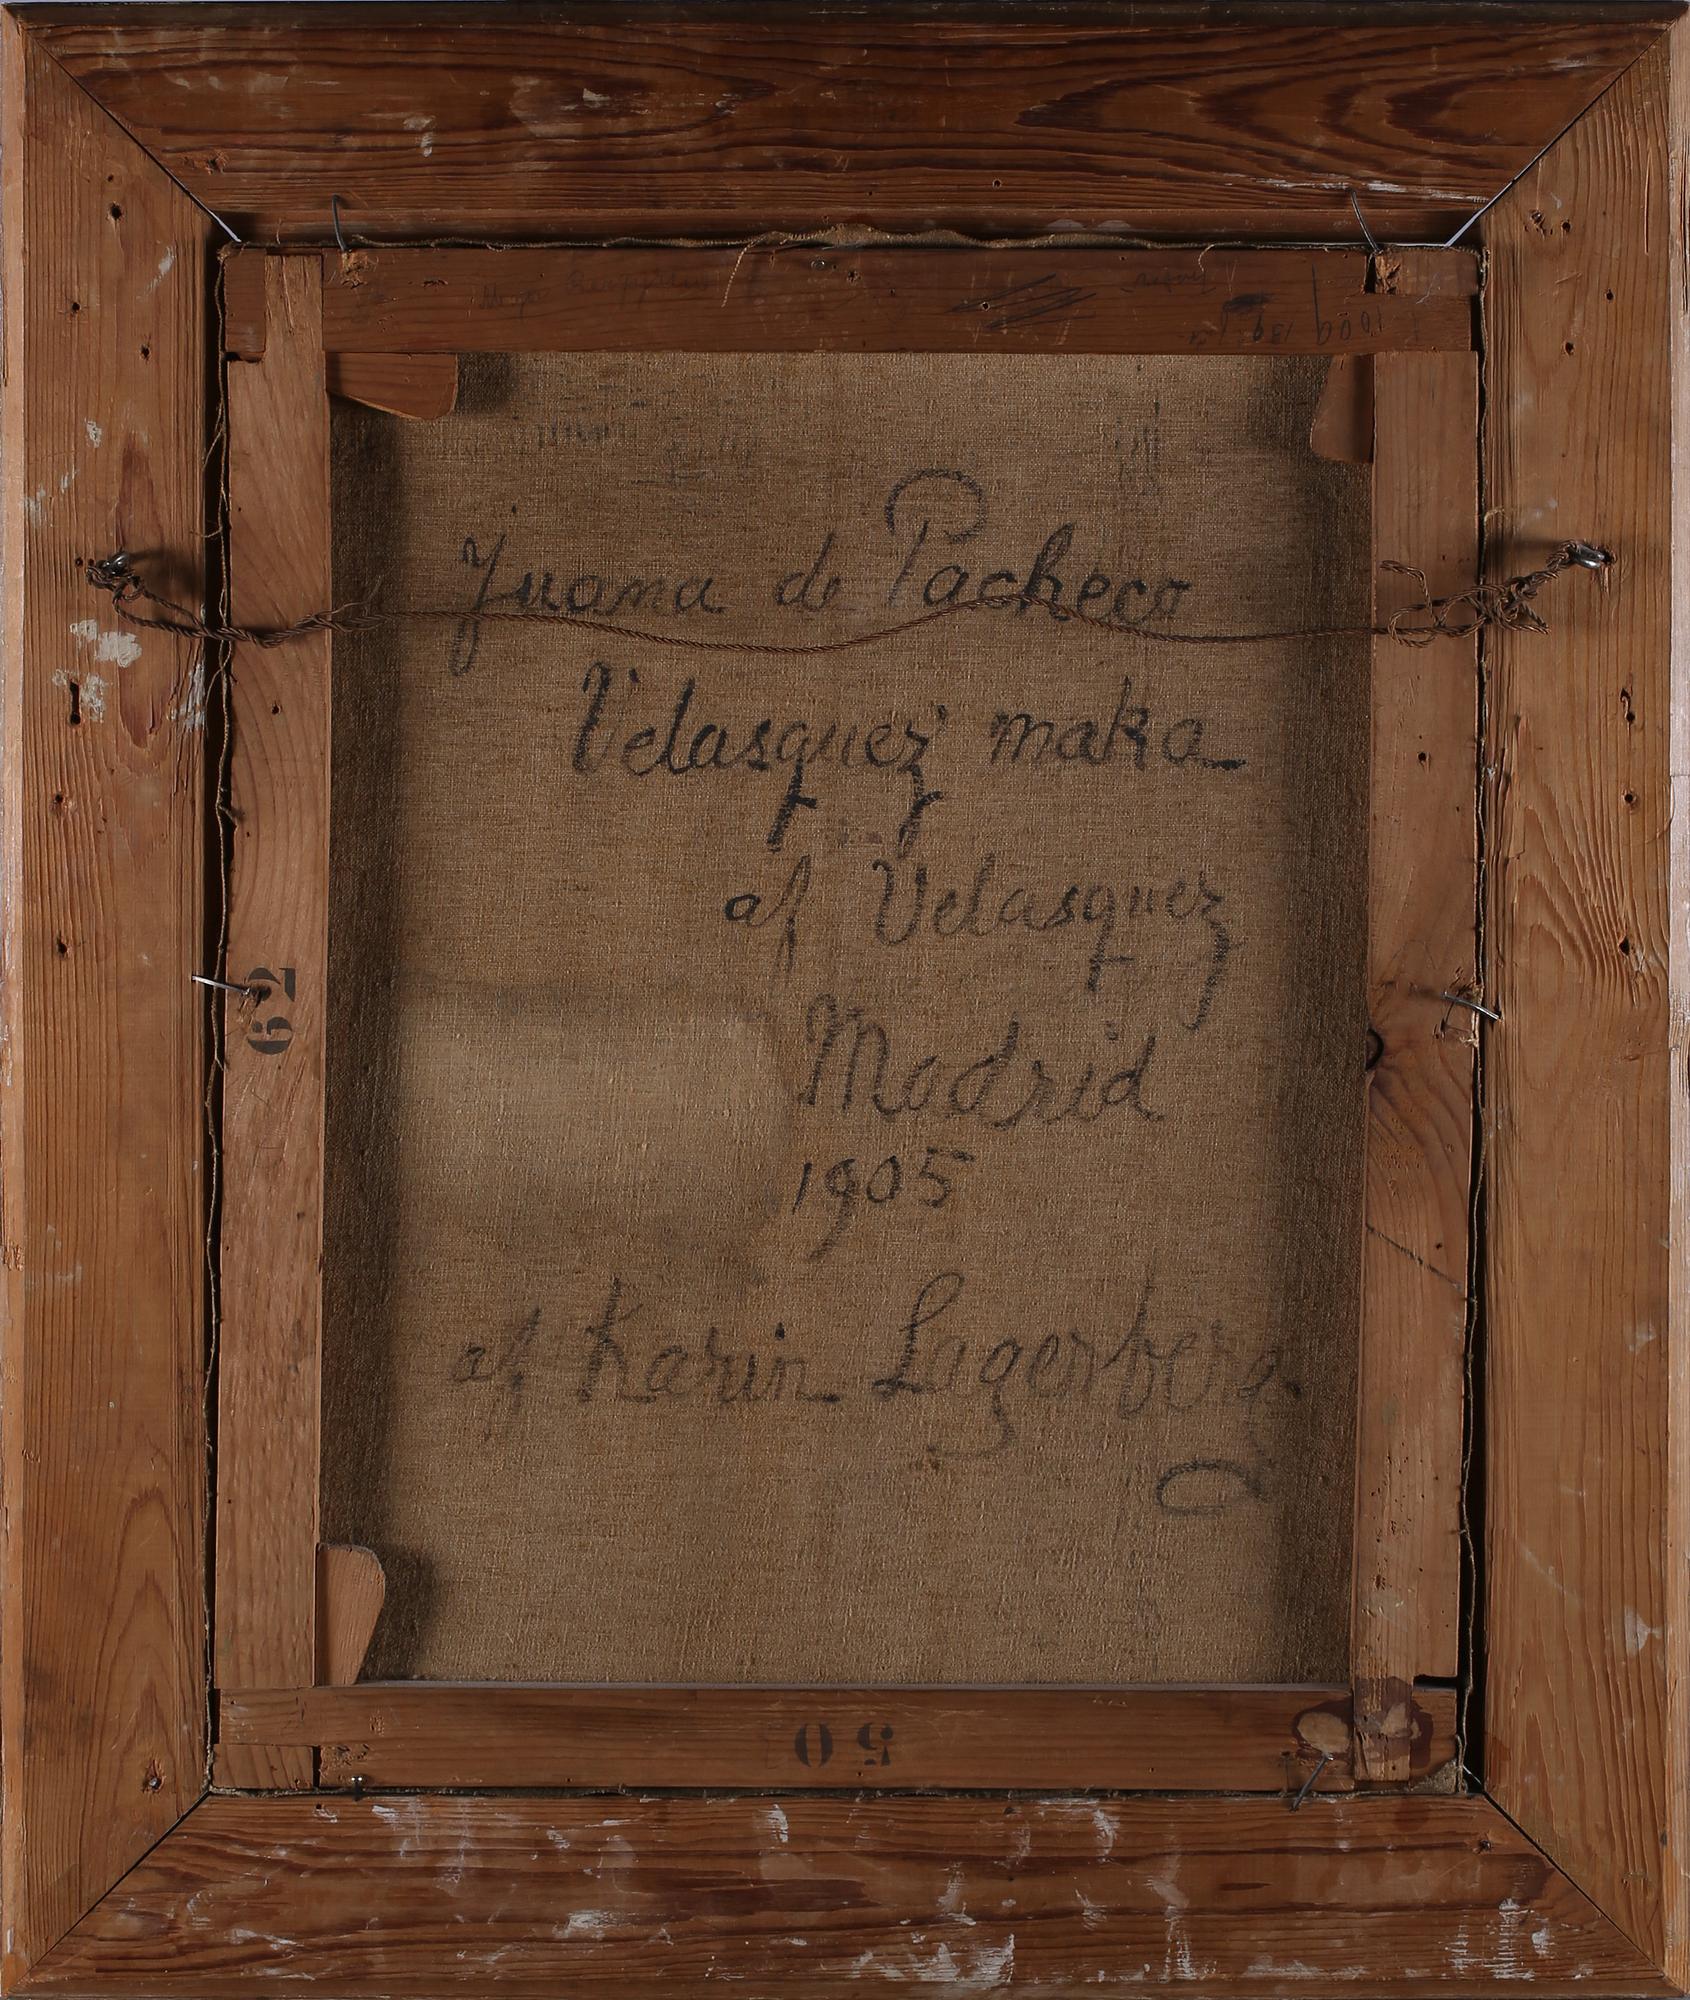 Juana de Pacheco
Velasquez maka
af Velasquez
Madrid
1905
af Karin Lagerberg
62
50